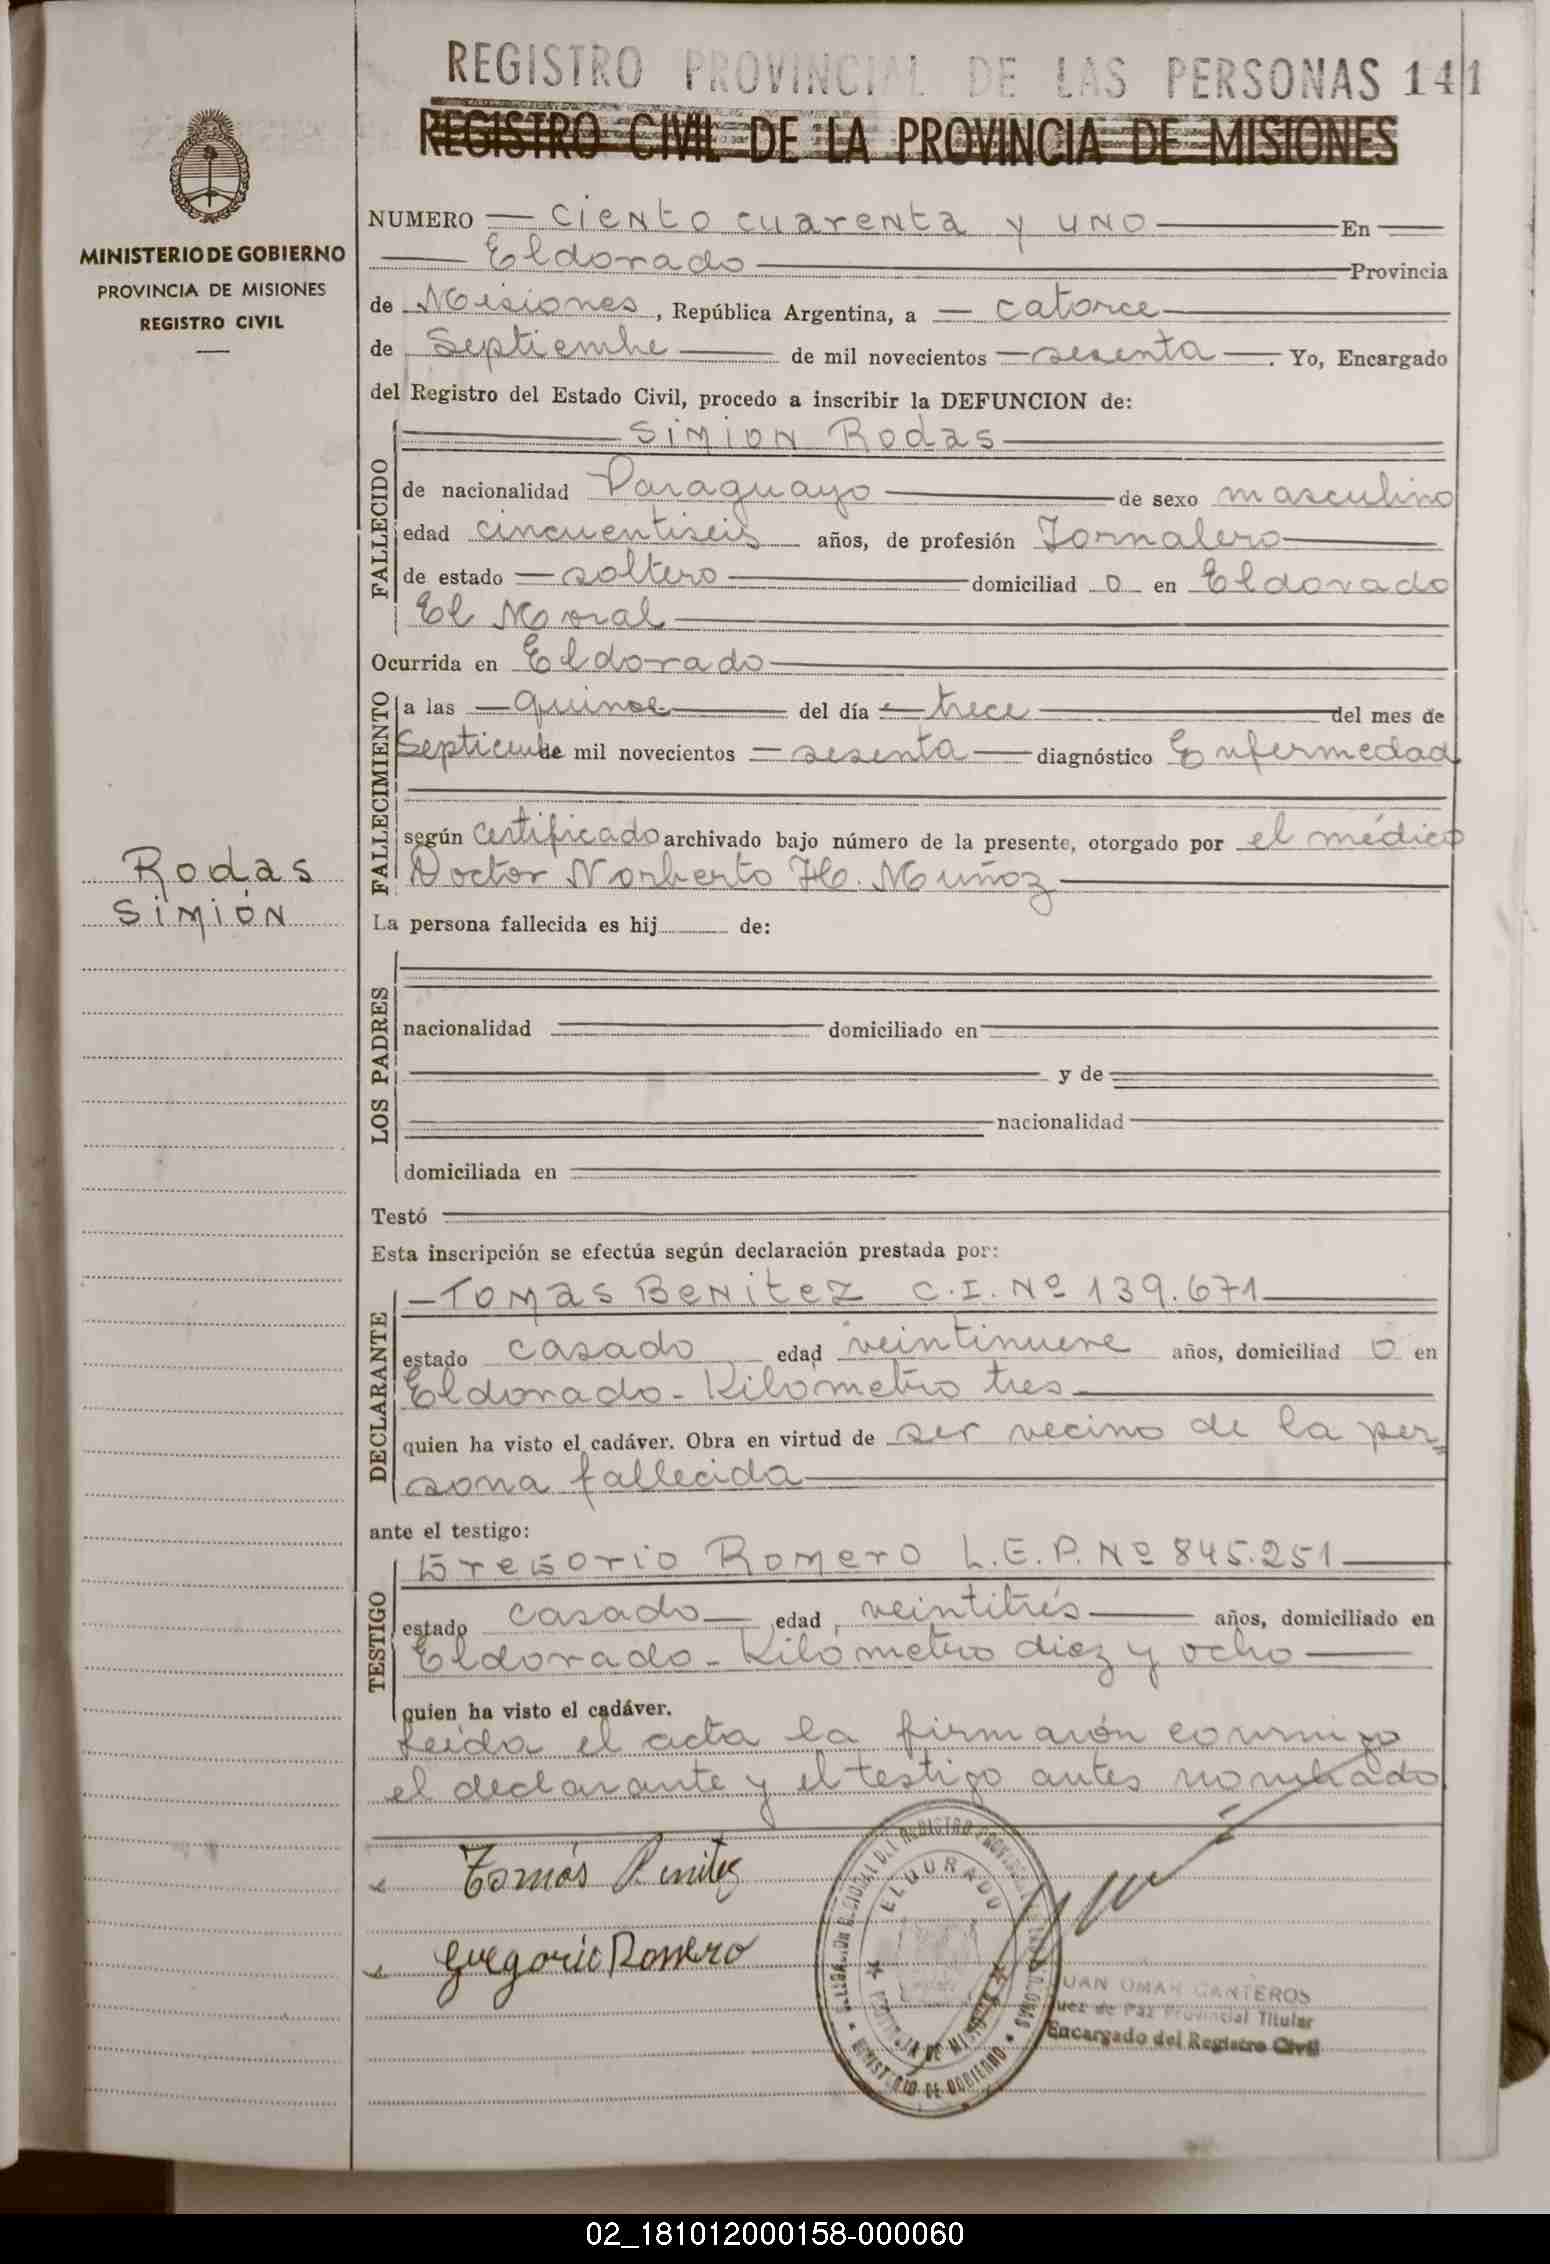 REGISTRO PROVINCIAL DE LAS PERSONAS 141
REGISTRO CIVIL DE LA PROVINCIA DE MISIONES
MINISTERIO DE GOBIERNO
PROVINCIA DE MISIONES
REGISTRO CIVIL
NUMERO ciento cuarenta y uno En
Eldorado Provincia
de Misiones, República Argentina, a catorce
de Septiembre de mil novecientos sesenta. Yo, Encargado
del Registro del Estado Civil, procedo a inscribir la DEFUNCION de:
FALLECIDO
Simion Rodas
de nacionalidad Paraguayo de sexo masculino
edad cincuentiseis años, de profesión Jornalero
de estado soltero domiciliad o en Eldorado
El Moral
Ocurrida en Eldorado
FALLECIMIENTO
a las quince del día trece del mes de
Septiembre de mil novecientos sesenta diagnóstico Enfermedad
según certificado archivado bajo número de la presente, otorgado por el médico
Doctor Norberto H. Muñoz
Rodas
Simión
La persona fallecida es hij de:
LOS PADRES
nacionalidad domiciliado en
y de
nacionalidad
domiciliada en
Testó
Esta inscripción se efectúa según declaración prestada por:
DECLARANTE
Tomas Benitez C.I. Nº 139.671
estado casado edad veintinueve años, domiciliad o en
Eldorado - Kilómetro tres
quien ha visto el cadáver. Obra en virtud de ser vecino de la per=
sona fallecida
ante el testigo:
TESTIGO
Gregorio Romero L.E.P. Nº 845.251
estado casado edad veintitrés años, domiciliado en
Eldorado - Kilómetro diez y ocho
quien ha visto el cadáver.
Leída el acta la firmarón conmigo
el declarante y el testigo antes nombrado
Tomás Benitez
Gregorio Romero
ELDORADO
PROVINCIA DE MISIONES
MINISTERIO DE GOBIERNO
JUAN OMAR CANTEROS
Juez de Paz Provincial Titular
Encargado del Registro Civil
02_181012000158-000060